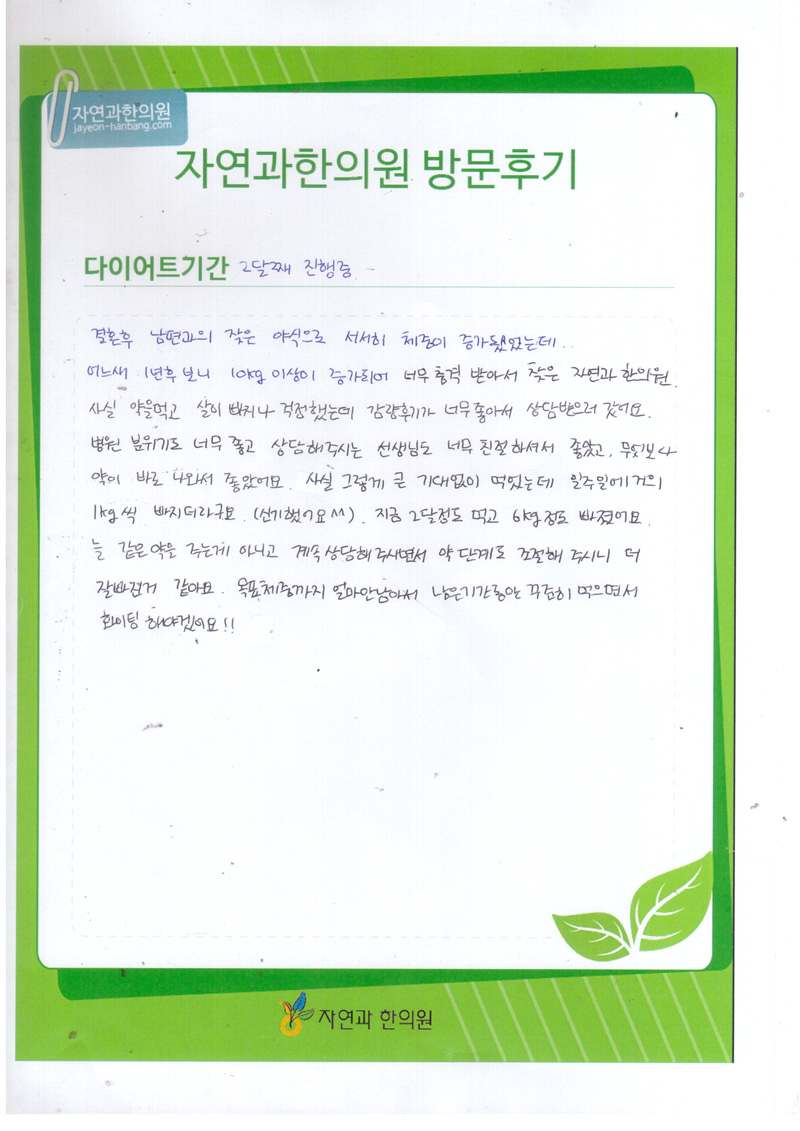 자연과한의원
jayeon-hanbang.com
자연과한의원 방문후기
다이어트기간 2달째 진행중
결혼후 남편과의 잦은 야식으로 서서히 체중이 증가됐었는데..
어느새 1년후 보니 10kg 이상이 증가되어 너무 충격 받아서 찾은 자연과 한의원.
사실 약을먹고 살이 빠지나 걱정했는데 감량후기가 너무좋아서 상담받으러 갔어요.
병원 분위기도 너무 좋고 상담해주시는 선생님도 너무 친절하셔서 좋았고, 무엇보다
약이 바로 나와서 좋았어요. 사실 그렇게 큰 기대없이 먹었는데 일주일에 거의
1kg 씩 빠지더라구요. (신기했어요^^). 지금 2달정도 먹고 6kg정도 빠졌어요.
늘 같은약을 주는게 아니고 계속상담해주시면서 약 단계도 조절해 주시니 더
잘빠진거 같아요. 목표체중까지 얼마안남아서 남은기간동안 꾸준히 먹으면서
화이팅 해야겠어요!!
자연과 한의원